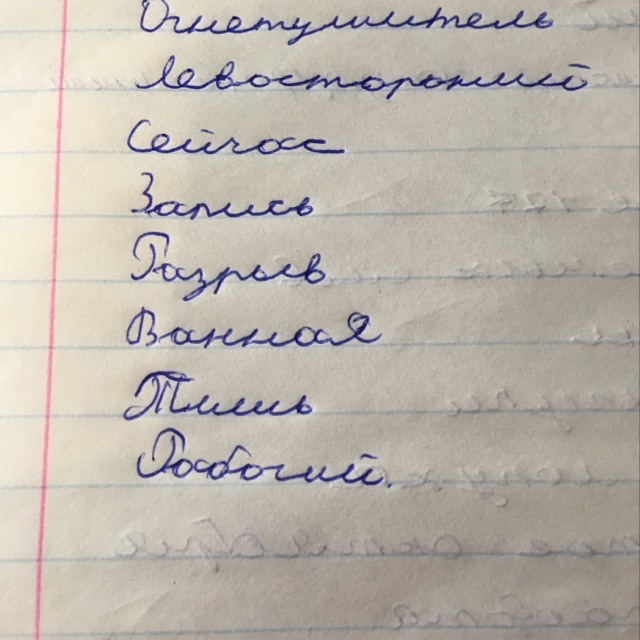 Огнетушитель
Левосторонний
Сейчас
Запись
Разрыв
Ванная
Рабочий.